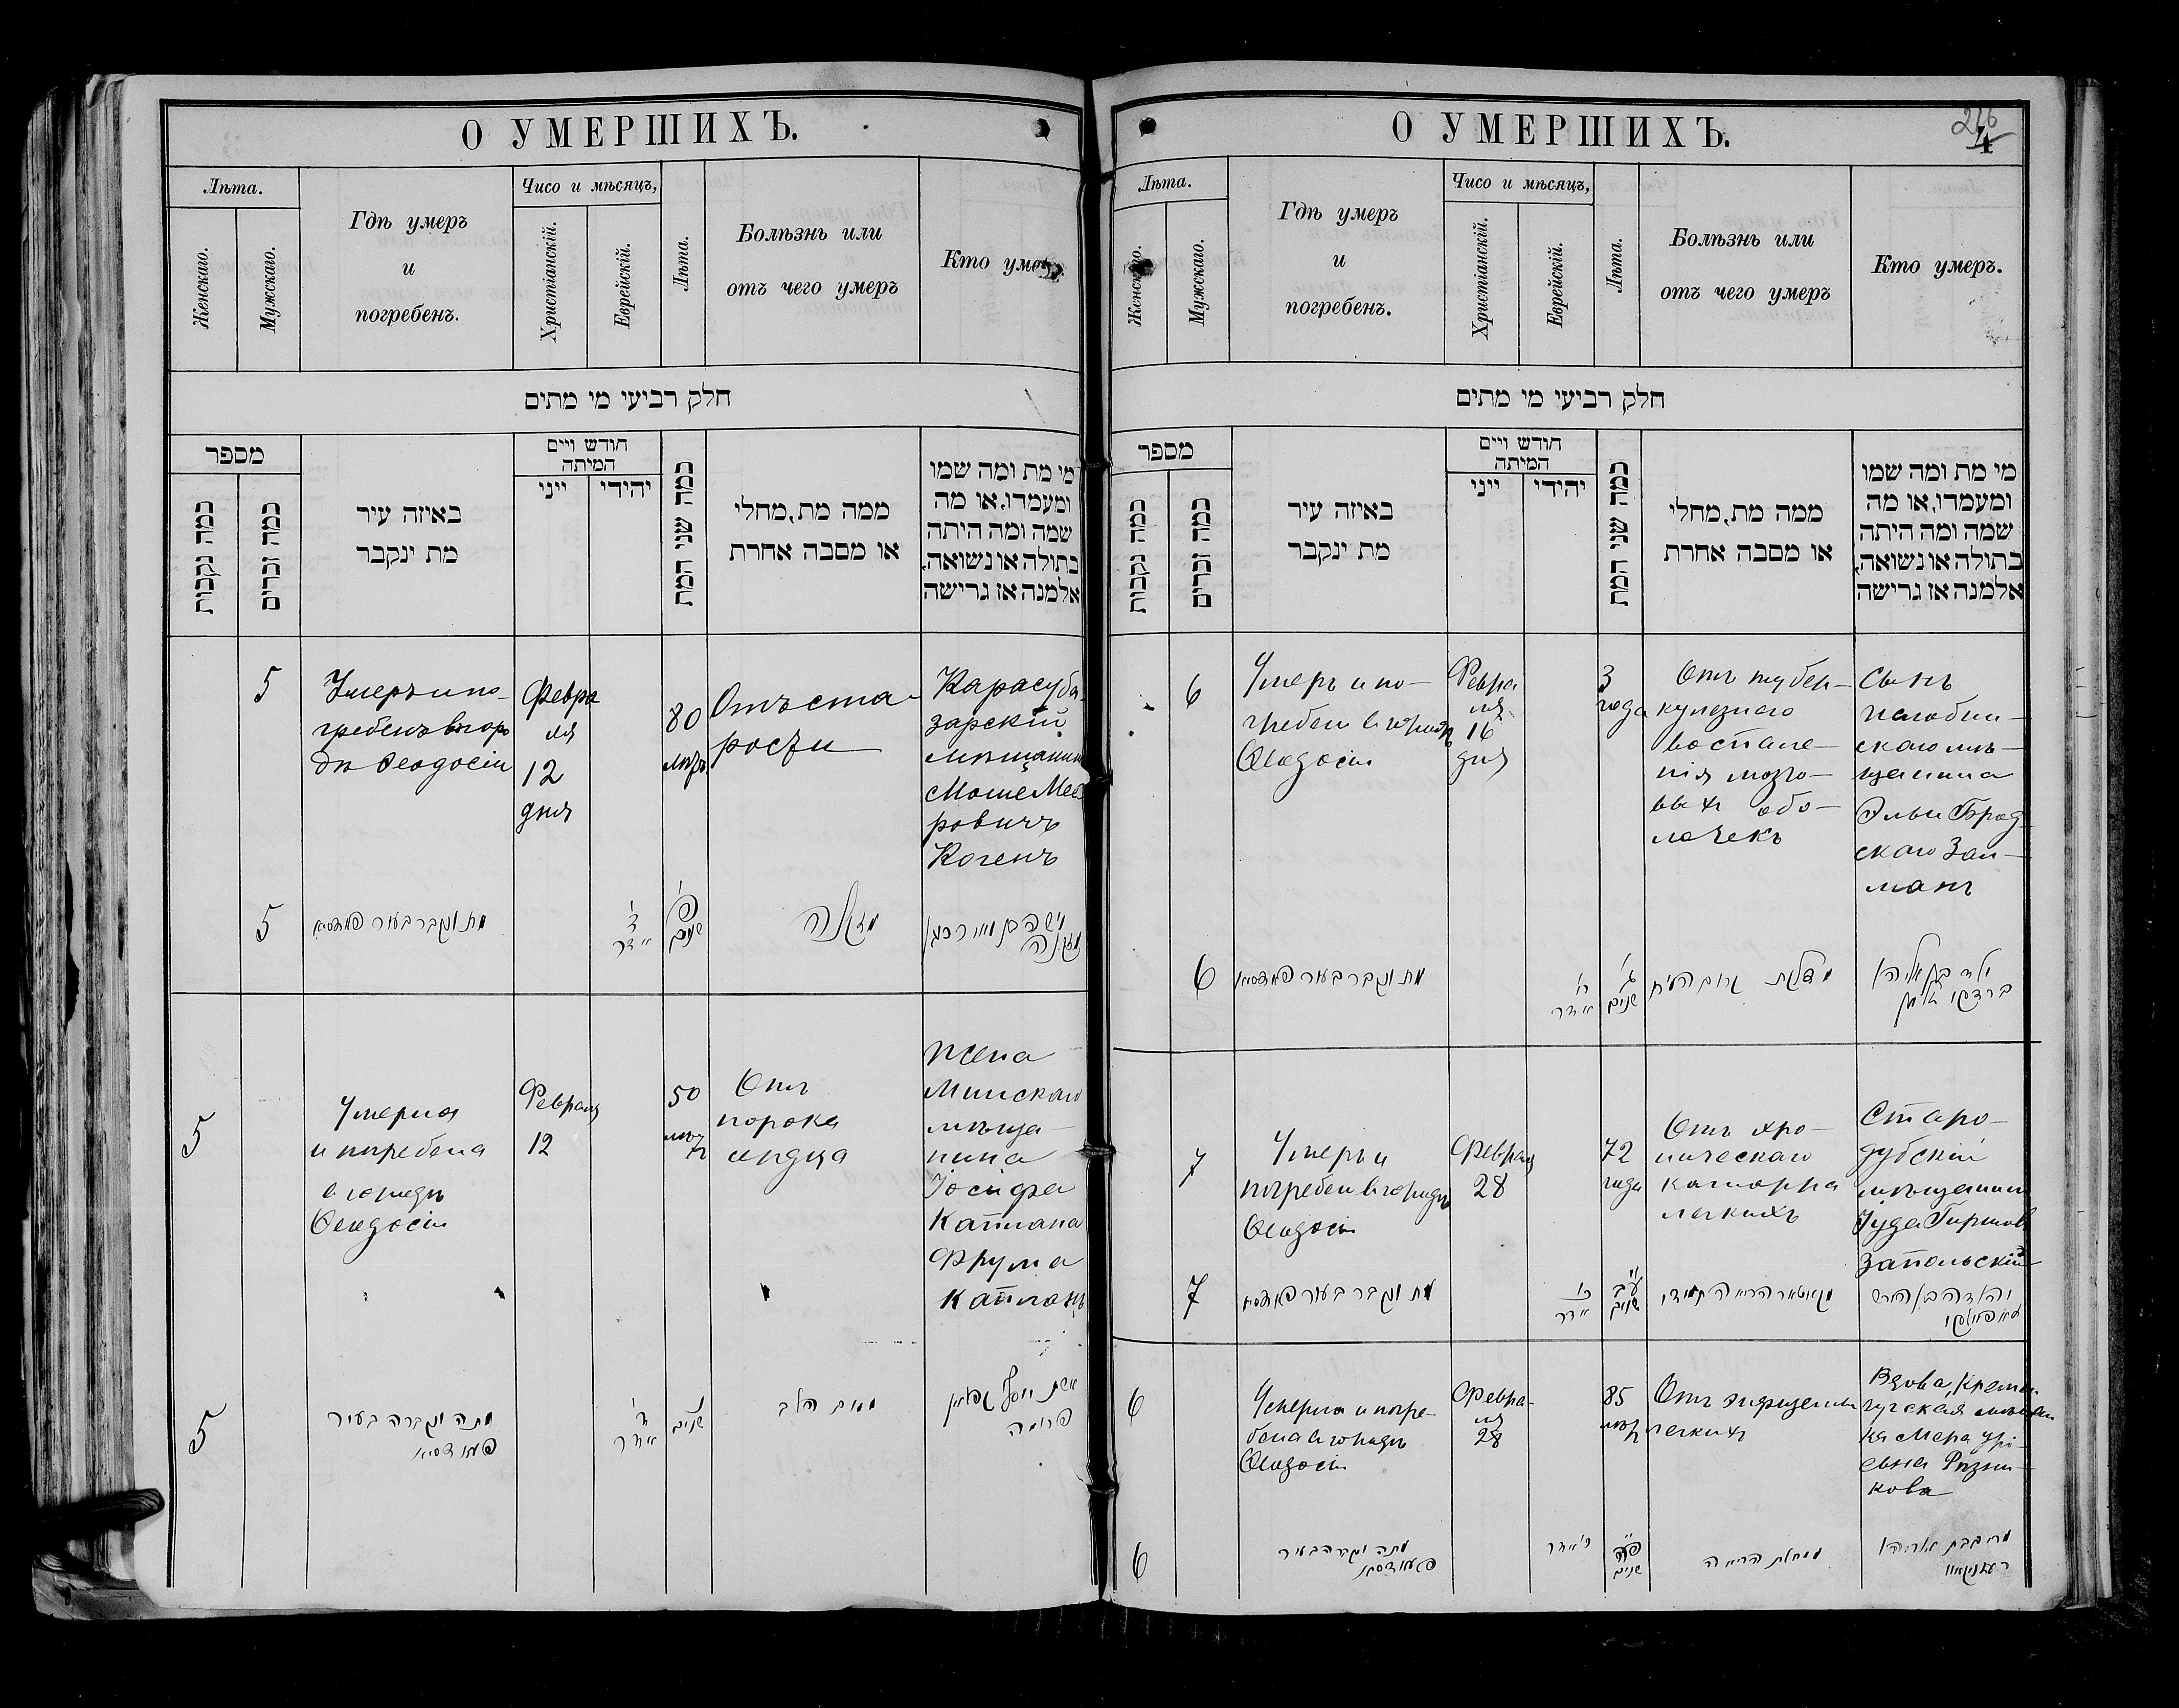 О УМЕРШИХЪ.
Лѣта.
Женскаго.
Мужскаго.
Гдѣ умеръ
и
погребенъ.
Чисо и мѣсяцъ,
Христіанскій.
Еврейскій.
Лѣта.
Болѣзнь или
отъ чего умеръ
Кто умеръ.
חלק רביעי מי מתים
מספר
כמה נקבות
כמה זכרים
באיזה עיר
מת ינקבר
חודש ויים
המיתה
ייני
יהידי
כמה שני המת
ממה מת, מחלי
או מסבה אחרת
מי מת ומה שמו
ומעמדו, או מה
שמה ומה היתה
בתולה או נשואה,
אלמנה אז גרישה
5
Умеръ и по-
гребенъ в горо
дѣ Ѳеодосіи
Февра
ля
12
дня
80
лѣтъ
Отъ ста-
рости
Карасуба-
зарскій
мѣщанин
Моше Меe
ровичъ
Когенъ
5
מת ונקבר בעיר
ד'
אדר
פ'
שנים
מזקנה
משה בן מאיר כהן
5
Умерла
и погребена
в городѣ
Ѳеодосіи
Февраля
12
50
лѣтъ
Отъ
порока
сердца
Жена
Минскаго
мѣща-
нина
Іосифа
Каплана
Фрума
Капланъ
5
מתה ונקברה בעיר
ד'
אדר
נ'
שנים
אשת יוסף קאפלאן
פרומה
О УМЕРШИХЪ.
216
4
Лѣта.
Женскаго.
Мужскаго.
Гдѣ умеръ
и
погребенъ.
Чисо и мѣсяцъ,
Христіанскій.
Еврейскій.
Лѣта.
Болѣзнь или
отъ чего умеръ
Кто умеръ.
חלק רביעי מי מתים
מספר
כמה נקבות
כמה זכרים
באיזה עיר
מת ינקבר
חודש ויים
המיתה
ייני
יהידי
כמה שני המת
ממה מת, מחלי
או מסבה אחרת
מי מת ומה שמו
ומעמדו, או מה
שמה ומה היתה
בתולה או נשואה,
אלמנה אז גרישה
6
Умеръ и по-
гребен в городѣ
Ѳеодосіи
Февра
ля
16
дня
3
года
Отъ тубер-
кулезнаго
воспале-
нія мозго-
выхъ обо-
лочекъ
Сынъ
скаго мѣ-
щанина
Эльи Брод-
скаго Зал-
манъ
6
מת ונקבר בעיר
אדר
ג'
שנים
מדלקת קרום המוח
ילד בן אליהו
7
Умеръ и
погребен в городѣ
Ѳеодосіи
Февраля
28
72
года
Отъ хро-
ническаго
катарра
легкихъ
Старо-
дубскій
мѣщанин
Іуда Гиршов
Запольскій
7
מת ונקבר בעיר
אדר
ע"ב
שנים
יהודה בן הירש
6
Умерла и погре-
бена в городѣ
Ѳеодосіи
Февра-
ля
28
85
лѣтъ
Отъ эмфиземы
легкихъ
Вдова, Кремен-
чугская мѣщан
ка Мера Урі-
евна Рѣзни-
кова
6
מתה ונקברה בעיר
אדר
פ"ה
שנים
ממחלת הריאה